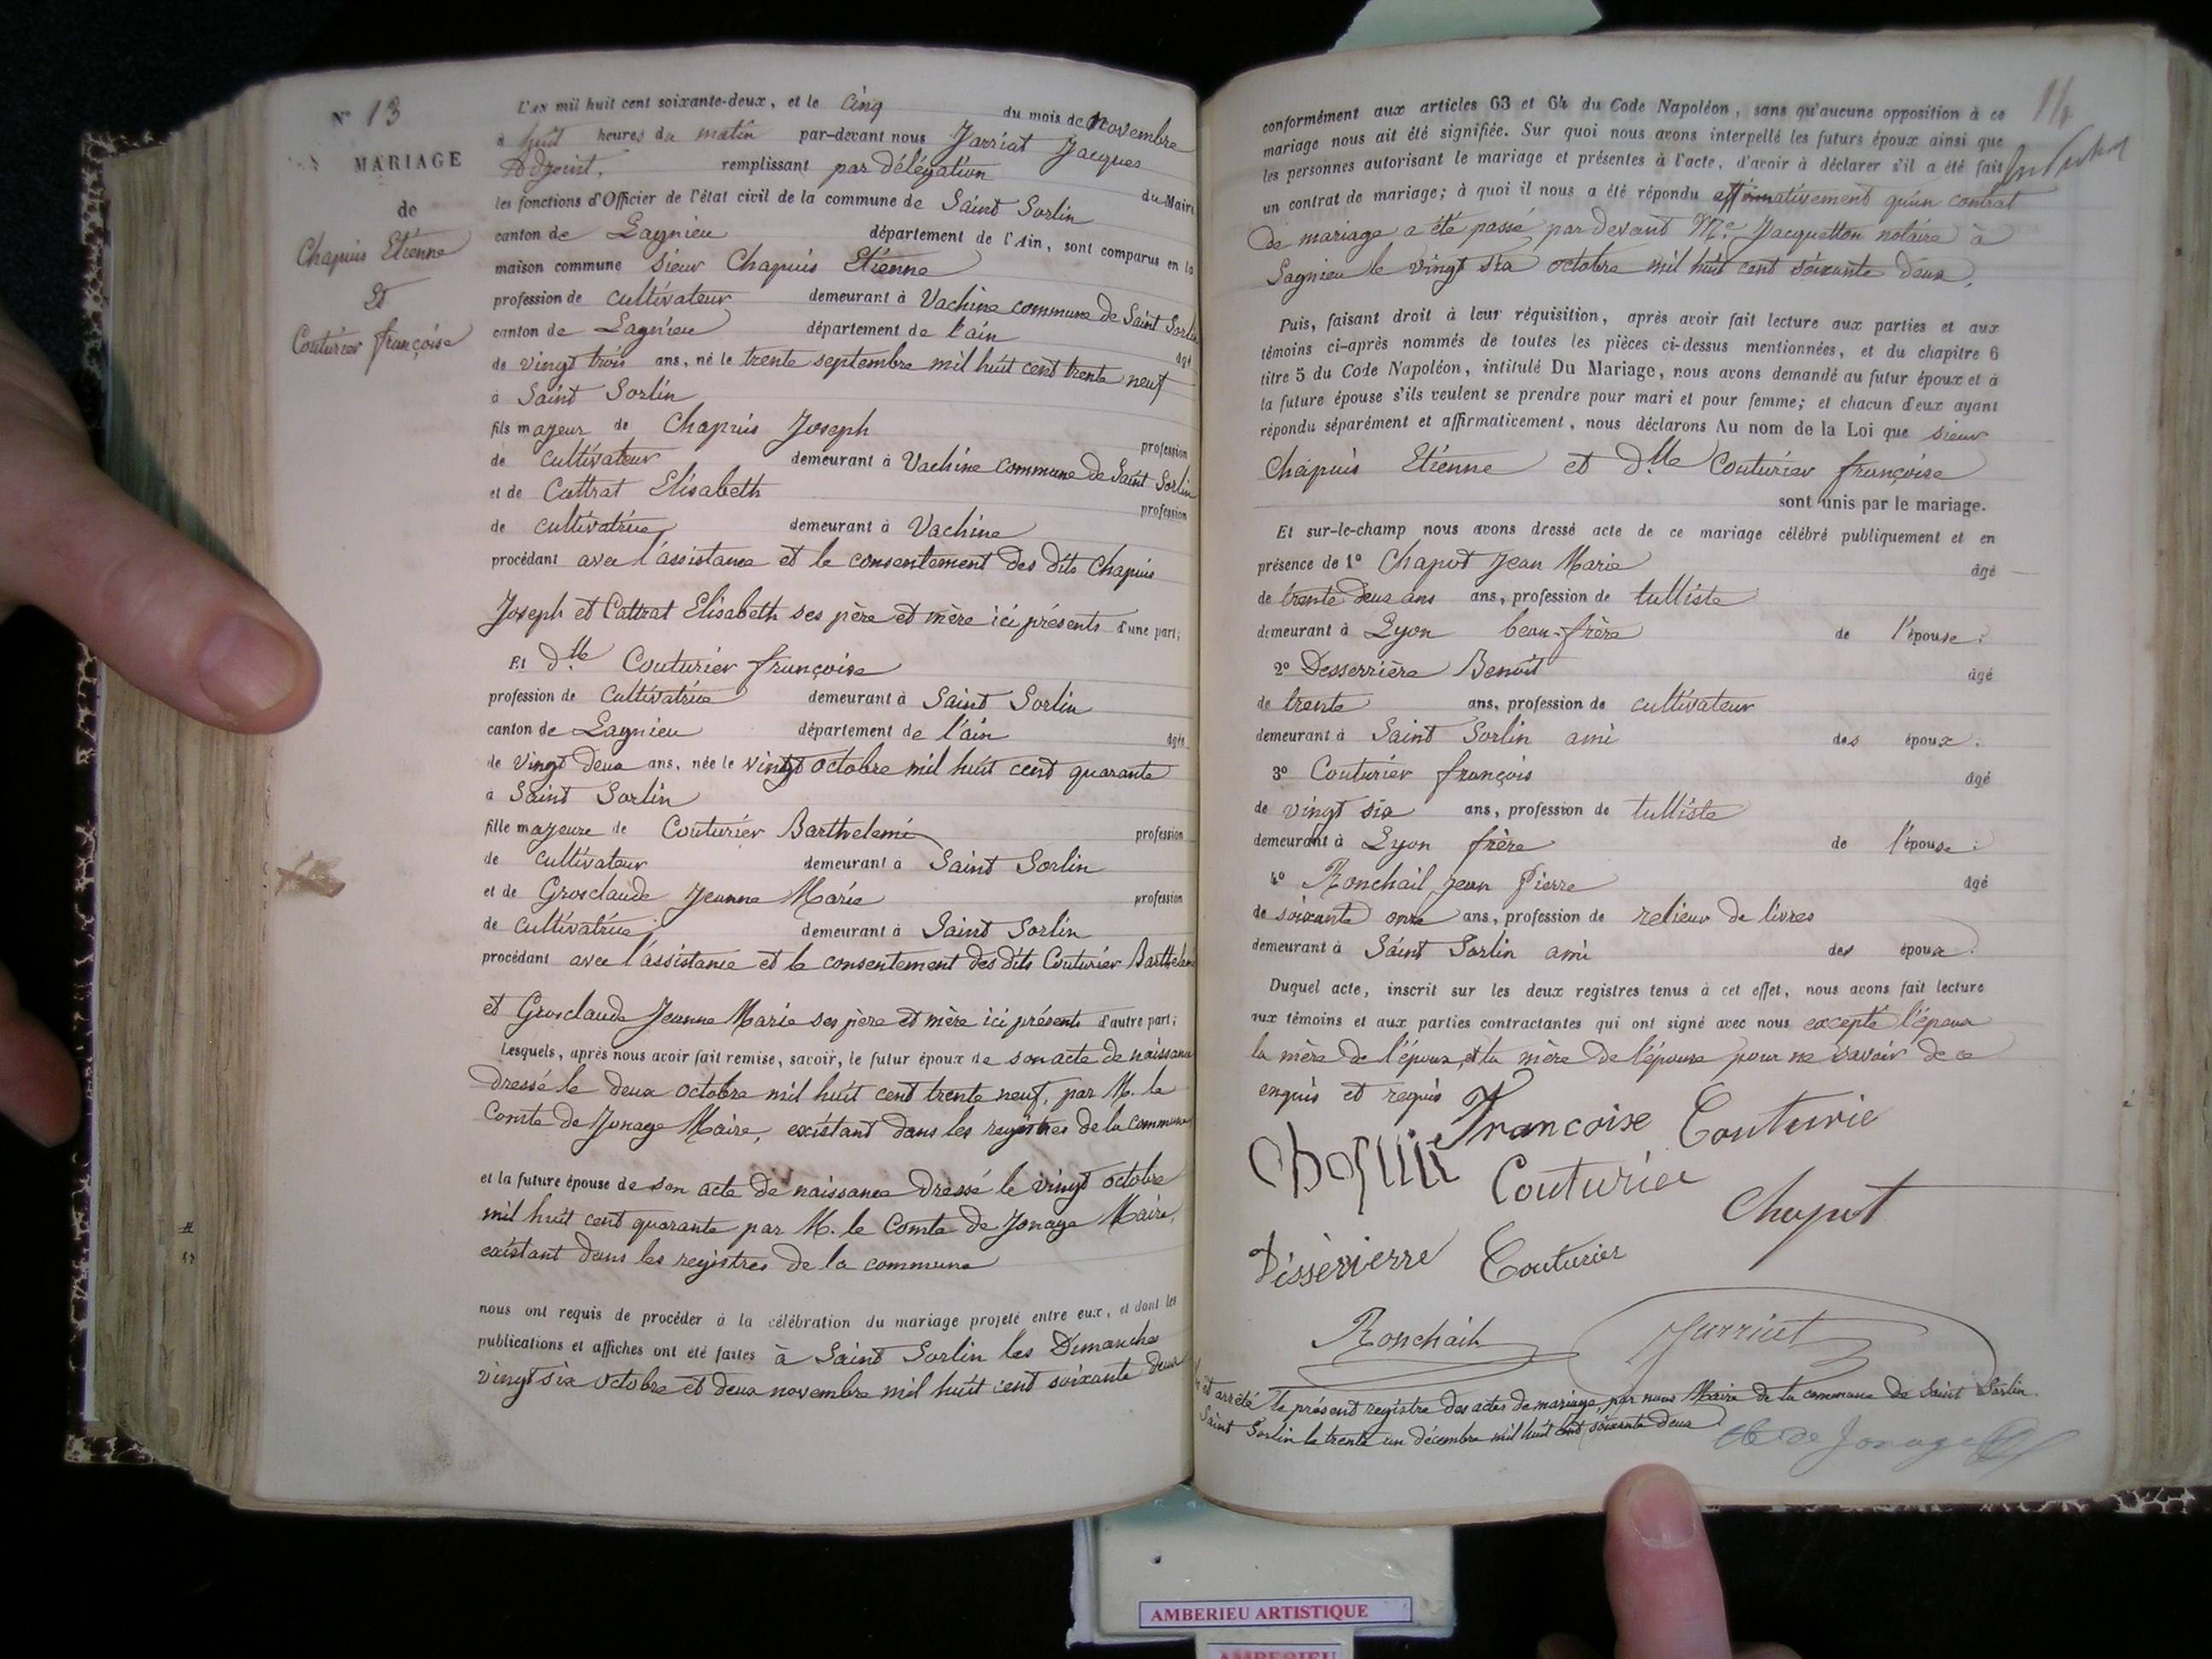 N° 13
MARIAGE
de
Chapuis Etienne
Et
Couturier françoise
L'an mil huit cent soixante-deux, et le cinq du mois de novembre
à huit heures du matin par-devant nous Jarriat Jacques
Adjoint, remplissant par délégation du Maire
les fonctions d'Officier de l'état civil de la commune de Saint Sorlin
canton de Lagnieu département de l'Ain, sont comparus en la
maison commune sieur Chapuis Etienne
profession de cultivateur demeurant à Vachine commune de Saint Sorlin
canton de Lagnieu département de l'ain âgé
de vingt trois ans, né le trente septembre mil huit cent trente neuf
à Saint Sorlin
fils majeur de Chapuis Joseph profession
de cultivateur demeurant à Vachine commune de Saint Sorlin
et de Cattrat Elisabeth profession
de cultivatrice demeurant à Vachine
procédant avec l'assistance et le consentement des dits Chapuis
Joseph et Cattrat Elisabeth ses père et mère ici présents d'une part;
Et dlle Couturier françoise
profession de cultivatrice demeurant à Saint Sorlin
canton de Lagnieu département de l'ain âgée
de vingt deux ans, née le vingt octobre mil huit cent quarante
à Saint Sorlin
fille majeure de Couturier Barthelemi profession
de cultivateur demeurant à Saint Sorlin
et de Grosclaude Jeanne Marie profession
de cultivatrice demeurant à Saint Sorlin
procédant avec l'assistance et le consentement des dits Couturier Barthelemi
et Grosclaude Jeanne Marie ses père et mère ici présents d'autre part;
Lesquels, après nous avoir fait remise, savoir, le futur époux de son acte de naissance
dressé le deux octobre mil huit cent trente neuf, par M. le
Comte de Jonage Maire, existant dans les registres de la commune
et la future épouse de son acte de naissance dressé le vingt octobre
mil huit cent quarante par M. le Comte de Jonage Maire,
existant dans les registres de la commune
nous ont requis de procéder à la célébration du mariage projeté entre eux, et dont les
publications et affiches ont été faites à Saint Sorlin les Dimanches
vingt six octobre et deux novembre mil huit cent soixante deux
14
conformément aux articles 63 et 64 du Code Napoléon, sans qu'aucune opposition à ce
mariage nous ait été signifiée. Sur quoi nous avons interpellé les futurs époux ainsi que
les personnes autorisant le mariage et présentes à l'acte, d'avoir à déclarer s'il a été fait
un contrat de mariage; à quoi il nous a été répondu affirmativement qu'un contrat
de mariage a été passé par devant Me Jacquetton notaire à
Lagnieu le vingt six octobre mil huit cent soixante deux.
Puis, faisant droit à leur réquisition, après avoir fait lecture aux parties et aux
témoins ci-après nommés de toutes les pièces ci-dessus mentionnées, et du chapitre 6
titre 5 du Code Napoléon, intitulé Du Mariage, nous avons demandé au futur époux et à
la future épouse s'ils veulent se prendre pour mari et pour femme; et chacun d'eux ayant
répondu séparément et affirmativement, nous déclarons Au nom de la Loi que sieur
Chapuis Etienne et dlle Couturier françoise
sont unis par le mariage.
Et sur-le-champ nous avons dressé acte de ce mariage célébré publiquement et en
présence de 1° Chapot Jean Marie âgé
de trente deux ans ans, profession de tulliste
demeurant à Lyon beau-frère de l'épouse;
2° Desserrière Benoit âgé
de trente ans, profession de cultivateur
demeurant à Saint Sorlin ami des époux;
3° Couturier françois âgé
de vingt six ans, profession de tulliste
demeurant à Lyon frère de l'épouse;
4° Ronchail Jean Pierre âgé
de soixante onze ans, profession de relieur de livres
demeurant à Saint Sorlin ami des époux
Duquel acte, inscrit sur les deux registres tenus à cet effet, nous avons fait lecture
aux témoins et aux parties contractantes qui ont signé avec nous excepté l'époux
la mère de l'époux, et la mère de l'épouse pour ne savoir de ce
enquis et requis
Francoise Couturie
Chapuis Couturier
Chapot
Disserierre Couturier
Ronchail Jarriat
et arrêté le présent registre des actes de mariage, par nous Maire de la commune de Saint Sorlin.
Saint Sorlin le trente un décembre mil huit cent soixante deux
Cte de Jonage
AMBERIEU ARTISTIQUE
AMBERIEU